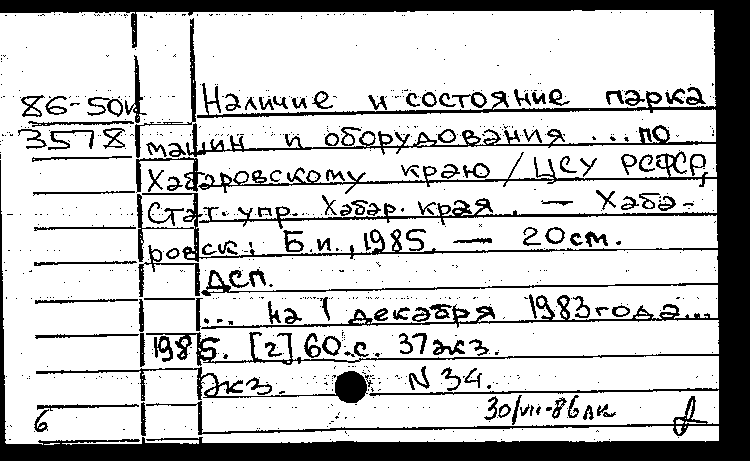 86-50к Наличие и состояние парка
3578 машин и оборудования ... по
Хабаровскому краю / ЦСУ РСФСР,
Стат. упр. Хабар. края. — Хаба-
ровск: Б.и., 1985. — 20см.
ДСП.
... на 1 декабря 1983 года...
1985. [2], 60 с. 37экз.
Экз. N 34.
30/VII-86 лк
6